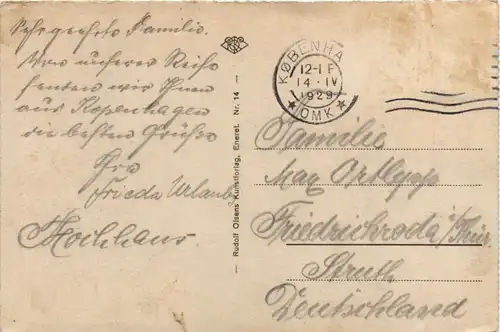 Sehr geehrte Familie.
Von unserer Reise
senden wir Ihnen
aus Kopenhagen
die besten Grüße
Ihre
Frieda Urlaub
Hochhaus
Rudolf Olsens Kunstforlag, Eneret. Nr. 14
KØBENHA
12-1 F
14-IV
1929
*OMK*
Familie
Max Ortlepp
Friedrichroda i/Thür.
Struth
Deutschland